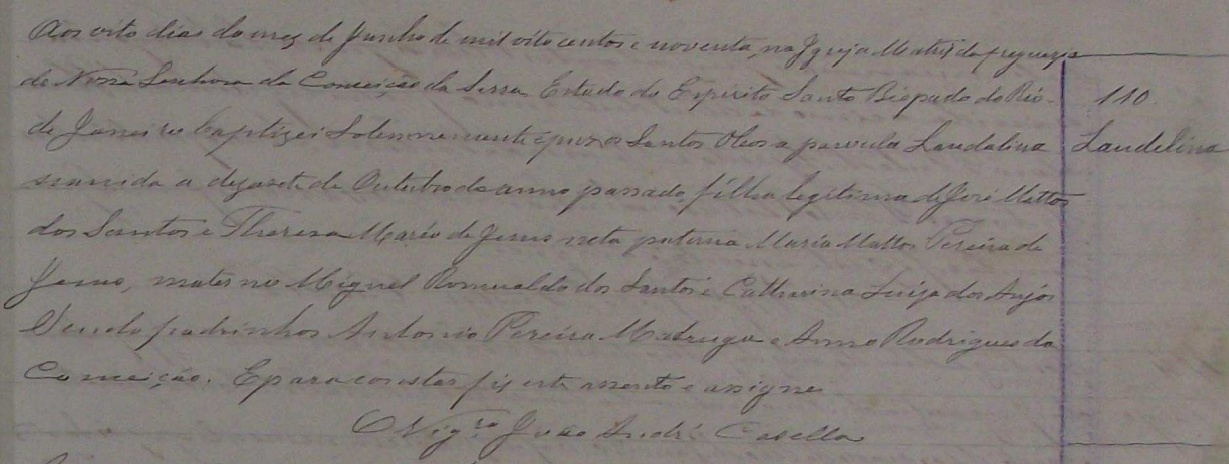 Aos oito dias do mez de Junho de mil oito centos e noventa, na Igreja Matriz da freguezia
de Nossa Senhora da Conceição da Serra Estado do Espirito Santo Bispado do Rio
110
de Janeiro baptizei Solemnemente e puz os Santos Oleos a parvula Laudelina
Laudelina
nascida a dezasete de Outubro do anno passado, filha legitima de José Mattos
dos Santos e Theresa Maria de Jesus neta paterna Maria Mattos Pereira de
Jesus, materno Miguel Romualdo dos Santos e Catharina Luiza dos Anjos
Sendo padrinhos Antonio Pereira Madruga e Anna Rodrigues da
Conceição. E para constar fiz este assento e assignei
O Vigro João André Casella